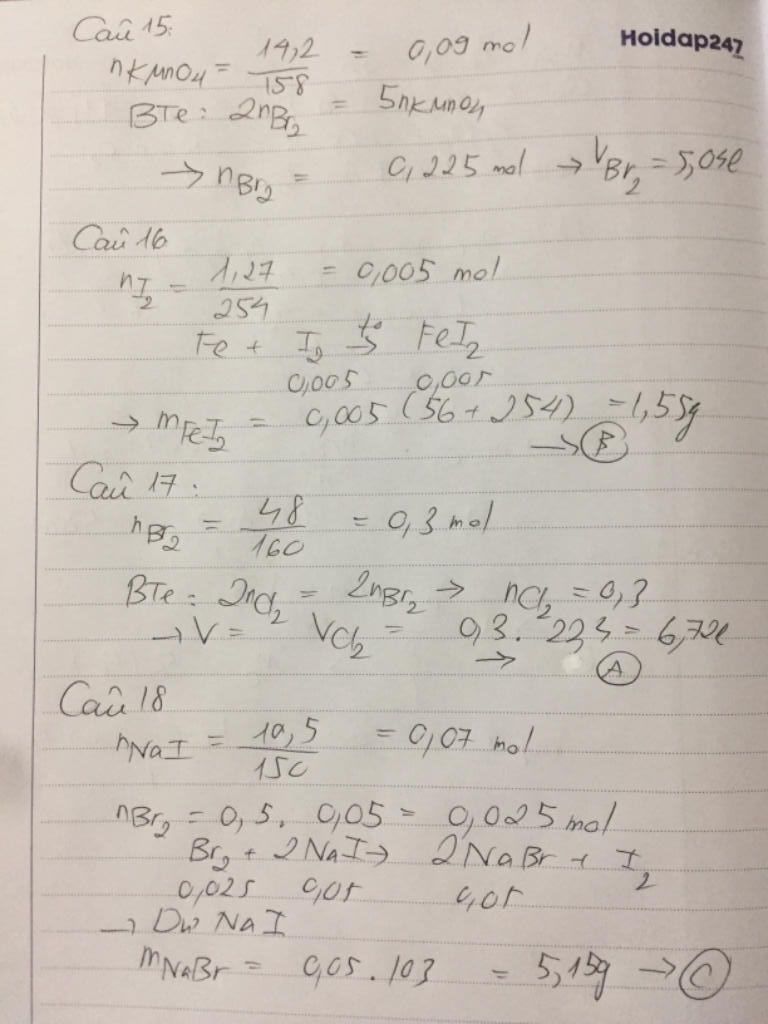 Câu 15:
Hoidap247
nKMnO4 = 14,2/158 = 0,09 mol
BTe: 2nBr2 = 5nKMnO4
→ nBr2 = 0,225 mol → VBr2 = 5,04l
Câu 16
nI2 = 1,27/254 = 0,005 mol
Fe + I2 t°→ FeI2
0,005 0,005
→ mFeI2 = 0,005 (56 + 254) = 1,55g
→ B
Câu 17:
nBr2 = 48/160 = 0,3 mol
BTe: 2nCl2 = 2nBr2 → nCl2 = 0,3
→ V = VCl2 = 0,3. 22,4 = 6,72l
→ A
Câu 18
nNaI = 10,5/150 = 0,07 mol
nBr2 = 0,5. 0,05 = 0,025 mol
Br2 + 2NaI → 2NaBr + I2
0,025 0,05 0,05
→ Dư NaI
mNaBr = 0,05.103 = 5,15g → C